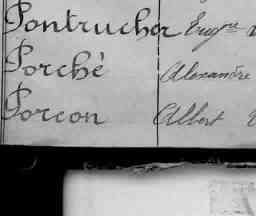 Pontrucher Eugne
Porché Alexandre
Porcon Albert